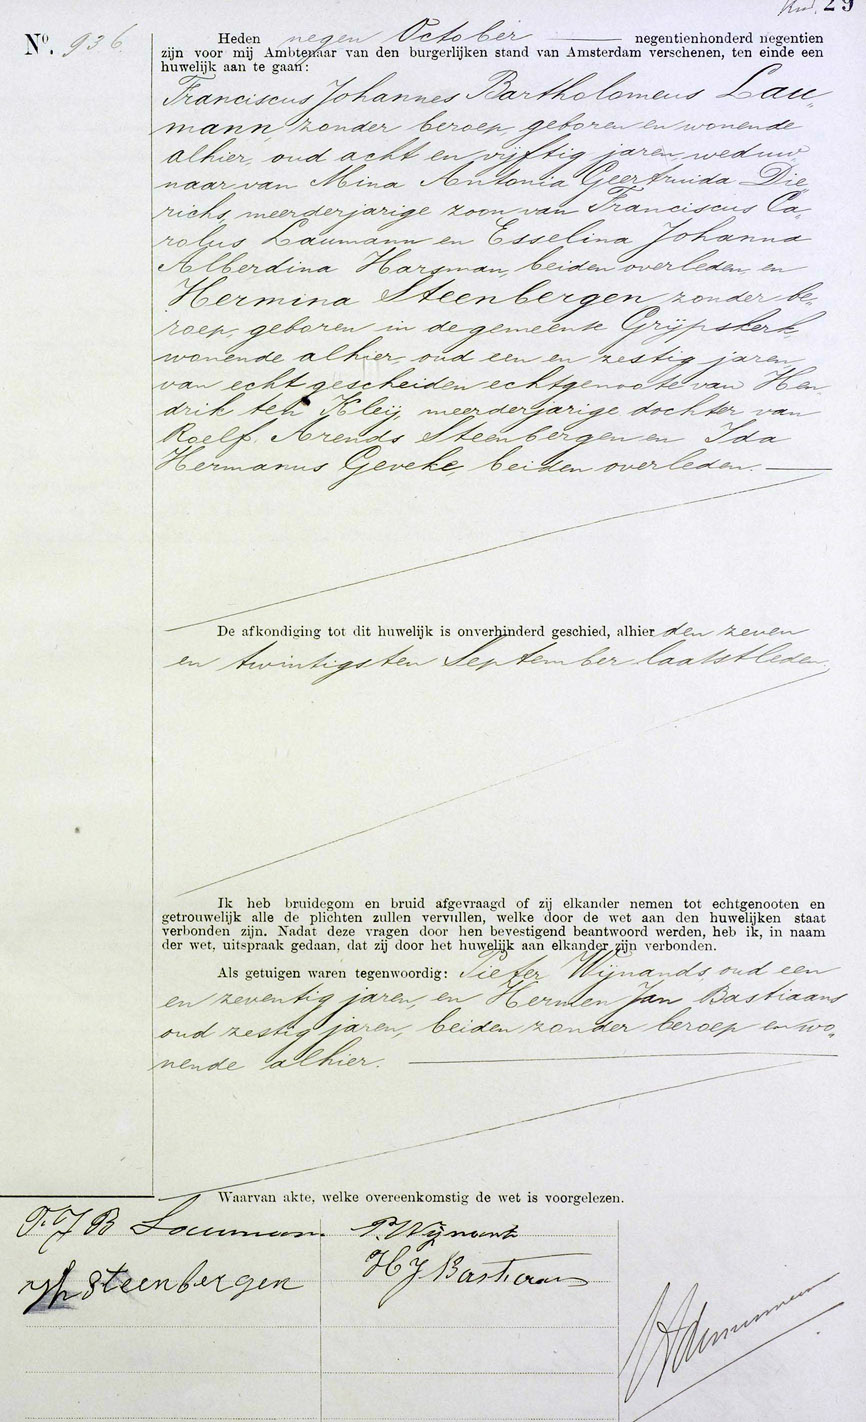 29
Nº. 936.
Heden negen October negentienhonderd negentien
zijn voor mij Ambtenaar van den burgerlijken stand van Amsterdam verschenen, ten einde een
huwelijk aan te gaan:
Franciscus Johannes Bartholomeus Lau-
mann, zonder beroep, geboren en wonende
alhier, oud acht en vijftig jaren, weduw-
naar van Mina Antonia Geertruida Die-
richs, meerderjarige zoon van Franciscus Ca-
rolus Laumann en Esselina Johanna
Alberdina Harsman, beiden overleden, en
Hermina Steenbergen zonder be-
roep, geboren in de gemeente Grijpskerk,
wonende alhier, oud een en zestig jaren,
van echt gescheiden echtgenoote van Hen-
drik ten Kleij, meerderjarige dochter van
Roelf Arends Steenbergen en Ida
Hermanus Geveke, beiden overleden.
De afkondiging tot dit huwelijk is onverhinderd geschied, alhier den zeven
en twintigsten September laatstleden.
Ik heb bruidegom en bruid afgevraagd of zij elkander nemen tot echtgenooten en
getrouwelijk alle de plichten zullen vervullen, welke door de wet aan den huwelijken staat
verbonden zijn. Nadat deze vragen door hen bevestigend beantwoord werden, heb ik, in naam
der wet, uitspraak gedaan, dat zij door het huwelijk aan elkander zijn verbonden.
Als getuigen waren tegenwoordig: Pieter Wijnands oud een
en zeventig jaren, en Hermen Jan Bastiaans
oud zestig jaren, beiden zonder beroep en wo-
nende alhier.
Waarvan akte, welke overeenkomstig de wet is voorgelezen.
F. J B Laumann. P. Wijnands
Steenbergen H J Bastiaans